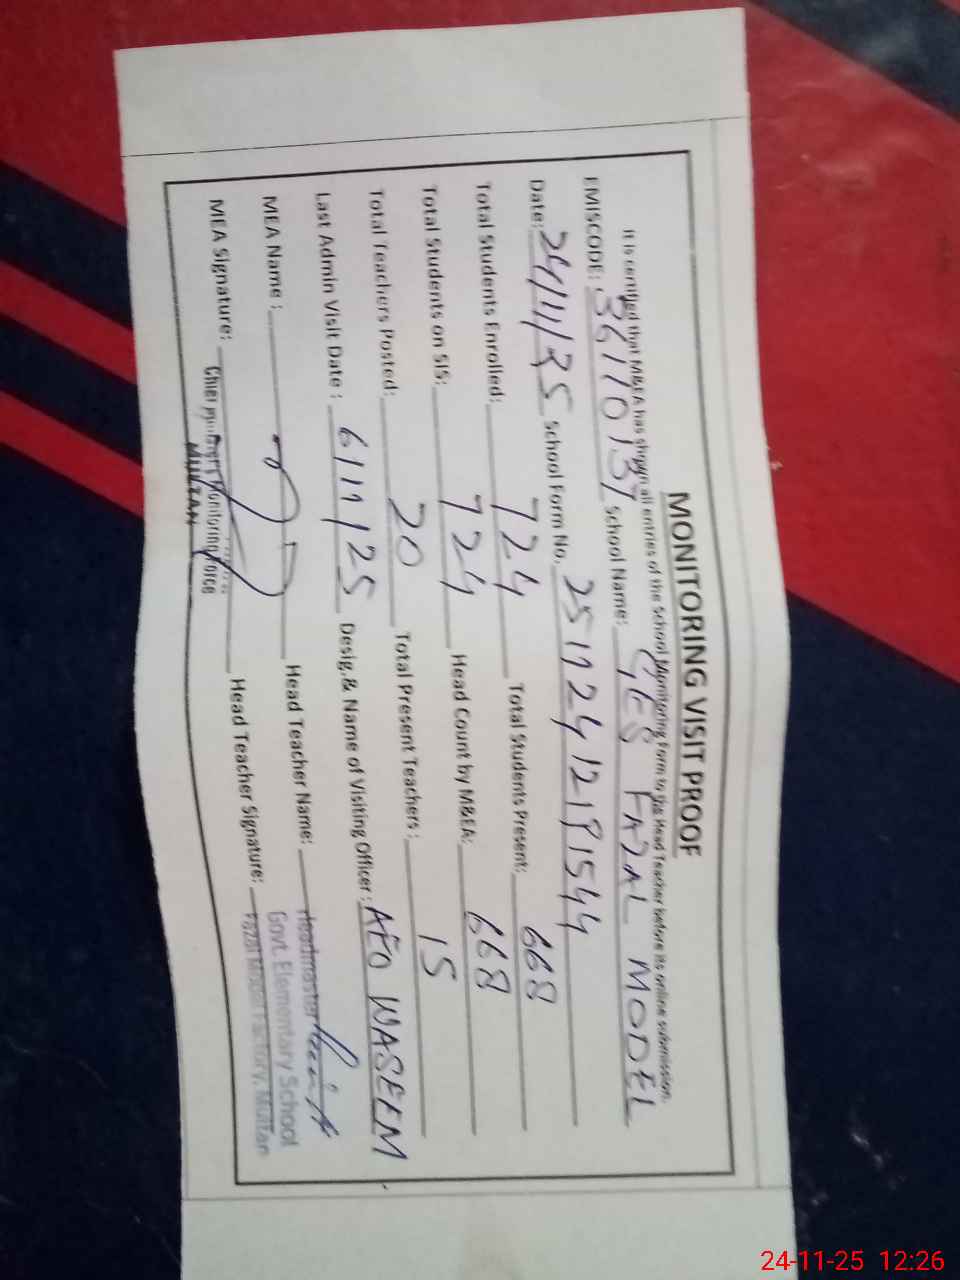 MONITORING VISIT PROOF
It is certified that M&EA has shown all entries of the School Monitoring Form to the Head Teacher before its online submission.
EMISCODE: 36110137 School Name: GES FAZAL MODEL
Date: 24/11/25 School Form No. 25112412181544
Total Students Enrolled: 724 Total Students Present: 668
Total Students on SIS: 724 Head Count by M&EA: 668
Total Teachers Posted: 20 Total Present Teachers: 15
Last Admin Visit Date: 6/11/25 Desig.& Name of Visiting Officer: AEO WASEEM
MEA Name: Head Teacher Name: Headmaster
MEA Signature: Head Teacher Signature: Govt. Elementary School
Chief Minister's Monitoring Force Fazal Model Factory, Multan
MULTAN
24-11-25 12:26